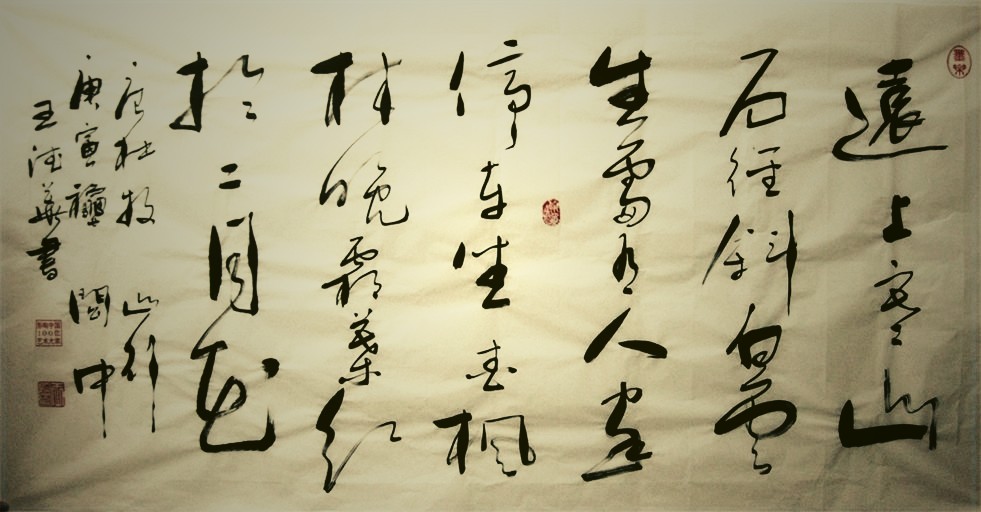 遠上寒山
石徑斜白雲
生處有人家
停車坐愛楓
林晚霜葉紅
於二月花
唐杜牧 山行
庚寅龝 閬中
王 書